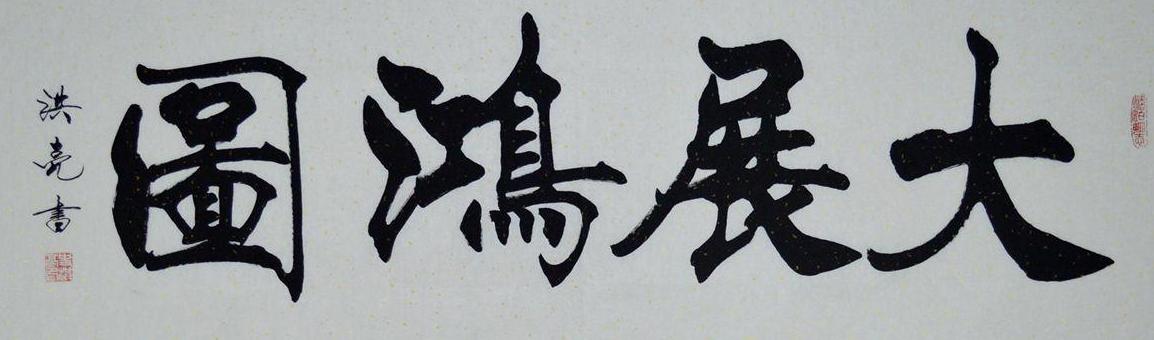 大展鴻圖
洪亮書